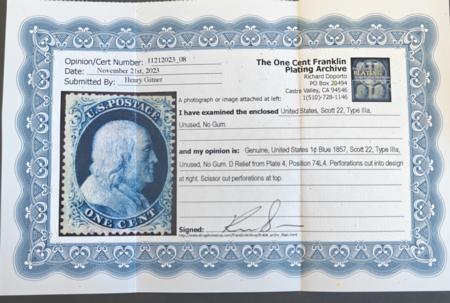 Opinion/Cert Number: 11212023_08
Date: November 21st, 2023
Submitted By: Henry Gitner
The One Cent Franklin
Plating Archive
Richard Doporto
PO Box 20494
Castro Valley, CA 94546
1(510)-728-1146
PLATING
A photograph or image attached at left:
I have examined the enclosed United States, Scott 22, Type IIIa,
Unused, No Gum.
and my opinion is: Genuine, United States 1¢ Blue 1857, Scott 22, Type IIIa,
Unused, No Gum. D Relief from Plate 4, Position 74L4. Perforations cut into design
at right. Scissor cut perforations at top.
U.S. POSTAGE
ONE CENT
Signed: